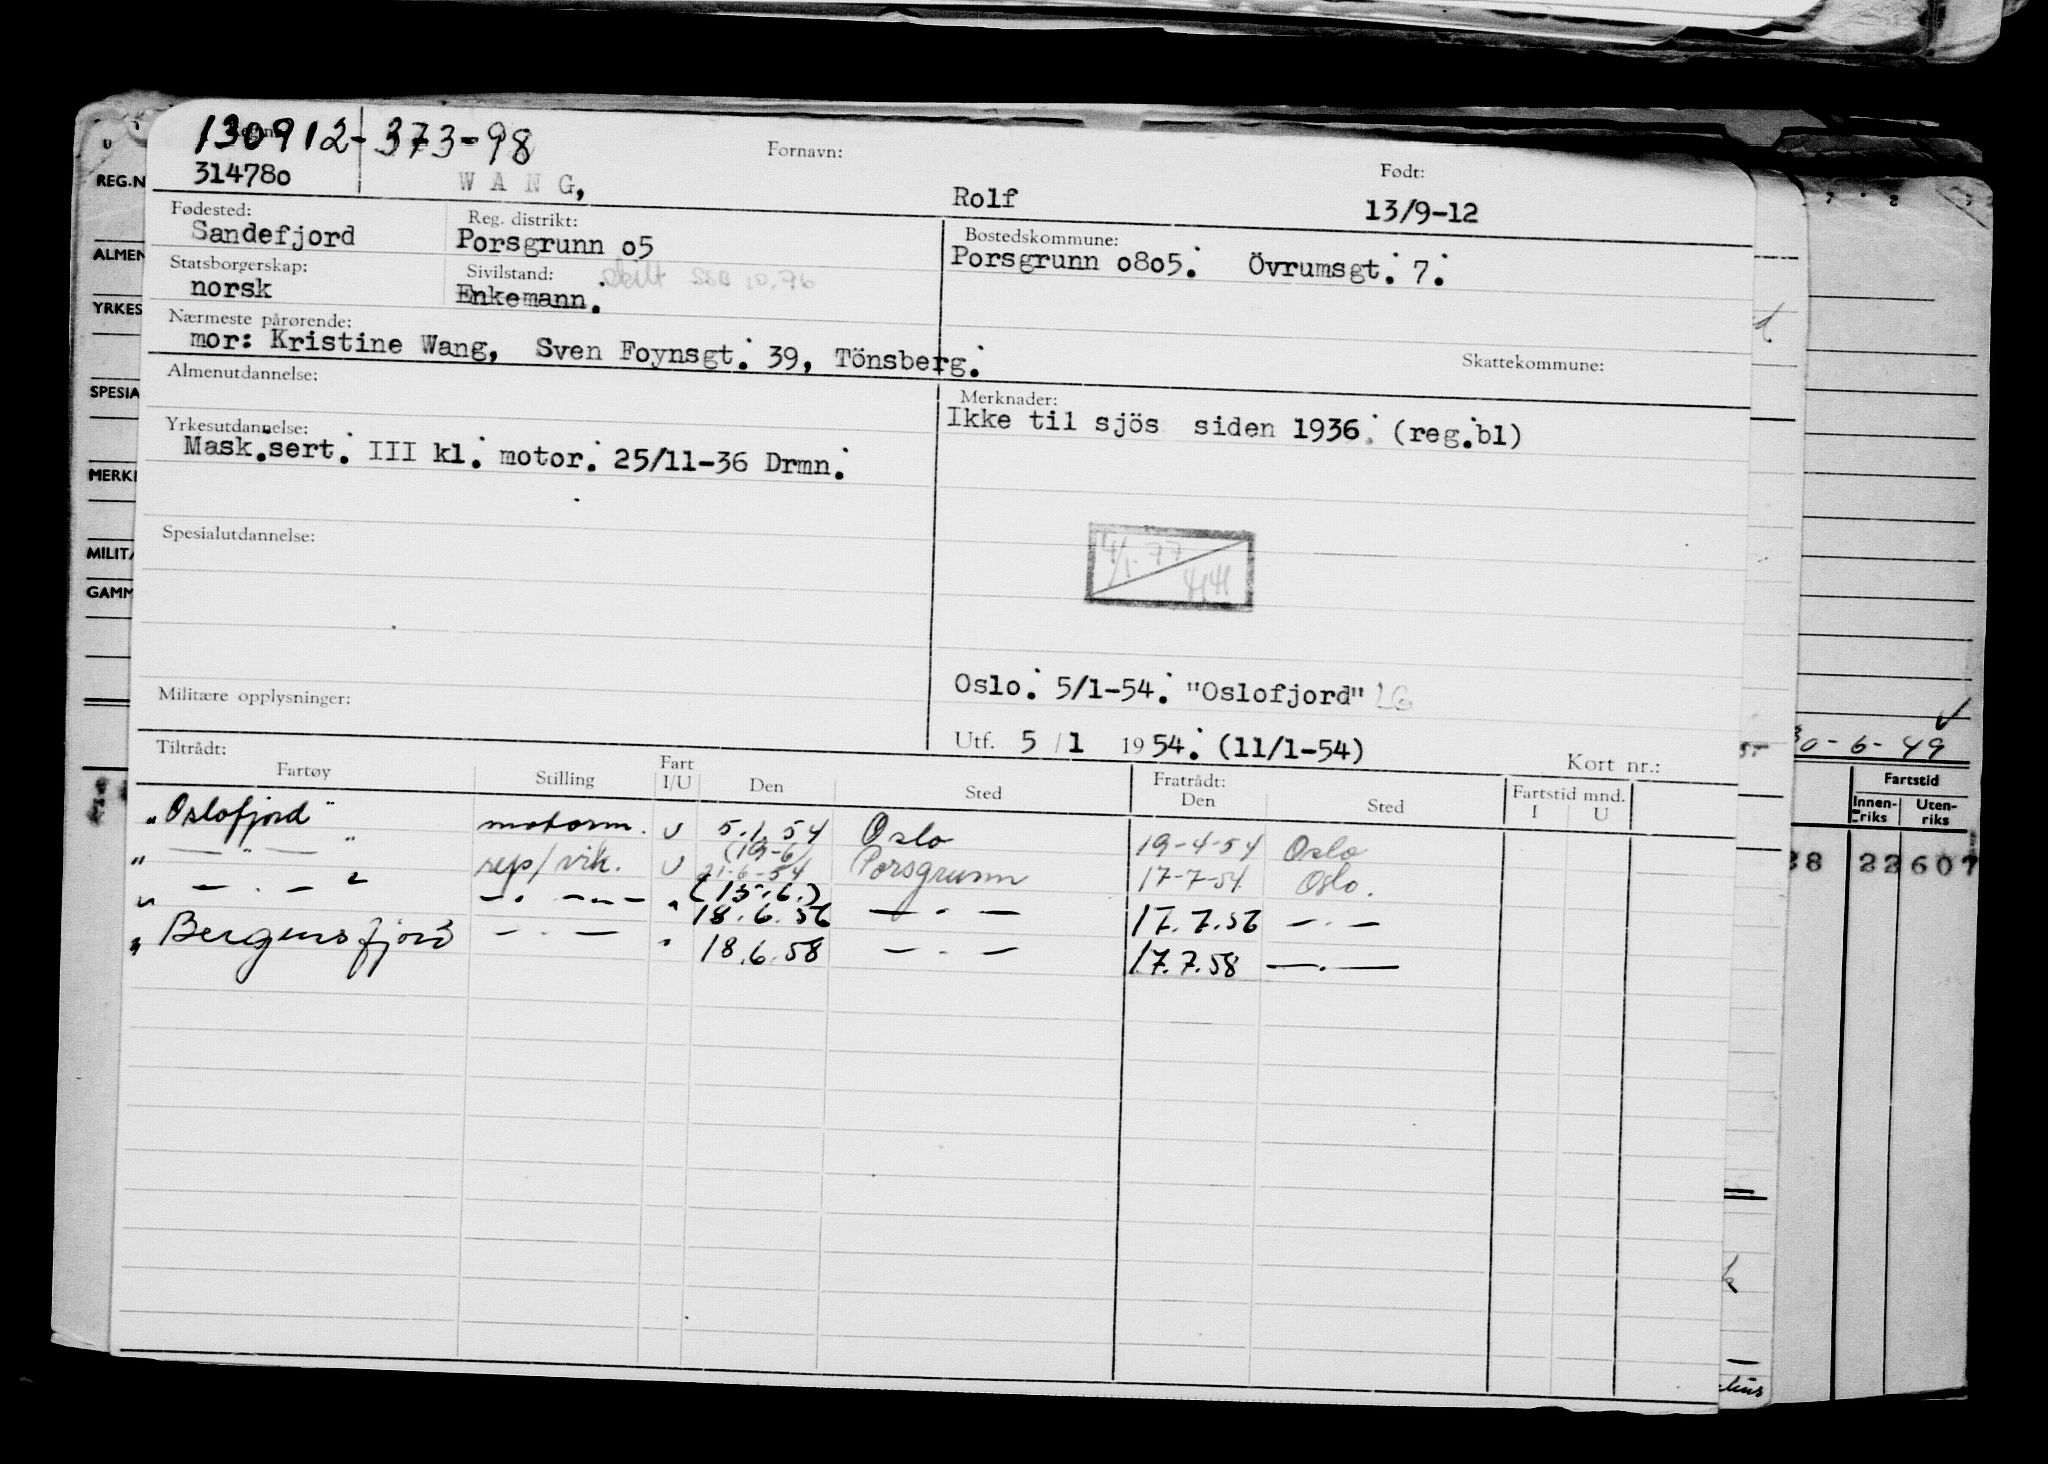 130912-373-98
314780 WANG, Fornavn: Rolf Født: 13/9-12
Fødested: Sandefjord Reg. distrikt: Porsgrunn o5 Bostedskommune: Porsgrunn o8o5. Övrumsgt. 7.
Statsborgerskap: norsk Sivilstand: Enkemann. skilt SSB 10.76
Nærmeste pårørende:
mor: Kristine Wang, Sven Foynsgt. 39, Tönsberg.
Skattekommune:
Almenutdannelse:
Merknader:
Ikke til sjös siden 1936. (reg.bl)
Yrkesutdannelse:
Mask.sert. III kl. motor. 25/11-36 Drmn.
Spesialutdannelse:
4/1-77
Militære opplysninger:
Oslo. 5/1-54. "Oslofjord" LG
Utf. 5/1 1954. (11/1-54)
Kort nr.:
Tiltrådt: Fratrådt:
Fartøy Stilling Fart I/U Den Sted Den Sted Fartstid mnd. I U
"Oslofjord" motorm. U 5.1.54 Oslo 19-4-54 Oslo
" — " — " rep/vik. U (19-6) 21-6-54 Porsgrunn 17-7-54 Oslo.
" — . — " — . — . — " (15.6.) 18.6.56 — . — 17.7.56 — . —
" Bergensfjord — . — " 18.6.58 — . — 17.7.58 — . —
REG.N
ALMEN
YRKES
SPESIA
MERK
MILIT
GAMM
30-6-49
Fartstid
Innenriks Utenriks
38 22 607